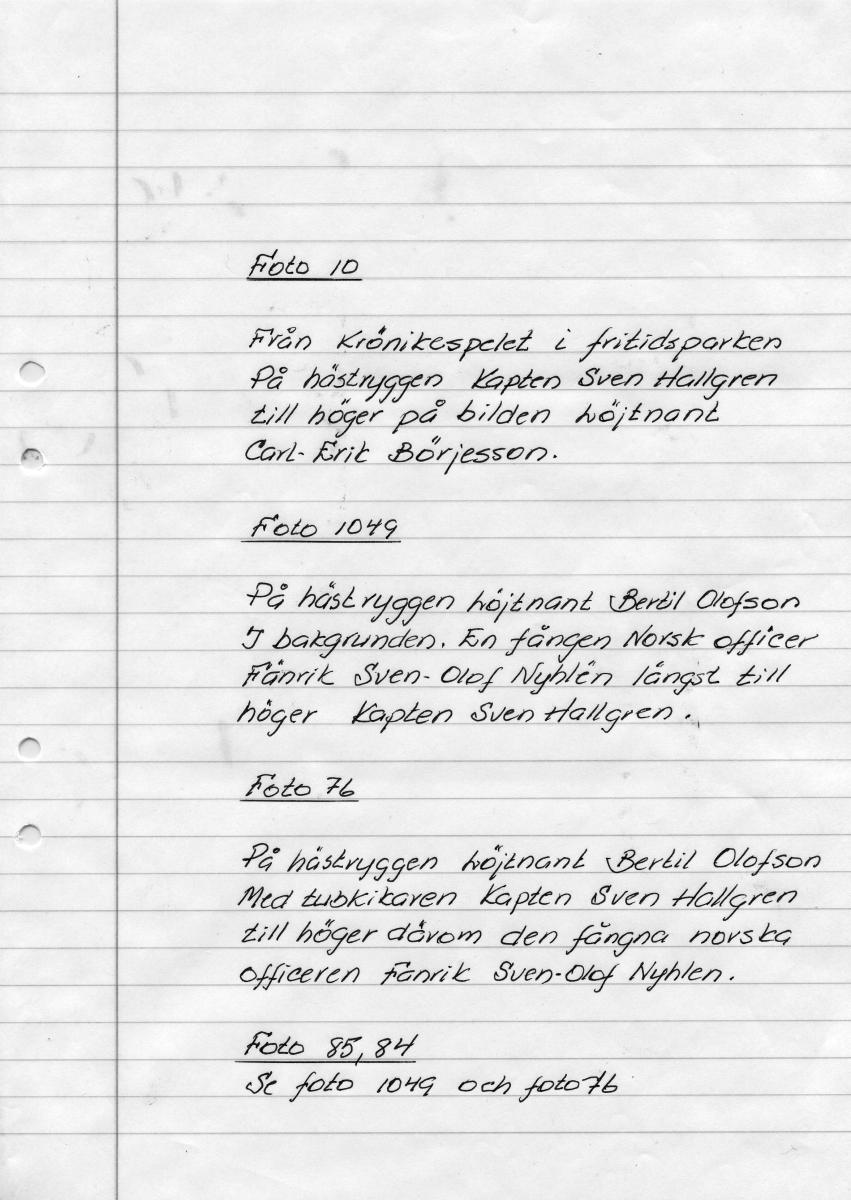 Foto 10
Från Krönikespelet i fritidsparken
På hästryggen Kapten Sven Hallgren
till höger på bilden Löjtnant
Carl-Erik Börjesson.
Foto 1049
På hästryggen Löjtnant Bertil Olofson
I bakgrunden. En fången Norsk officer
Fänrik Sven-Olof Nyhlén längst till
höger Kapten Sven Hallgren.
Foto 76
På hästryggen Löjtnant Bertil Olofson
Med tubkikaren Kapten Sven Hallgren
till höger därom den fångna norska
officeren Fänrik Sven-Olof Nyhlen.
Foto 85, 84
Se foto 1049 och foto 76